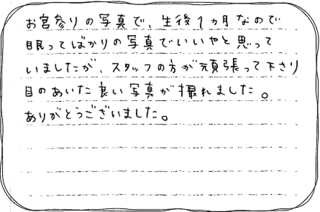 お宮参りの写真で、生後1ヵ月なので
眠ってばかりの写真でいいやと思って
いましたが、スタッフの方が頑張って下さり
目のあいた良い写真が撮れました。
ありがとうございました。